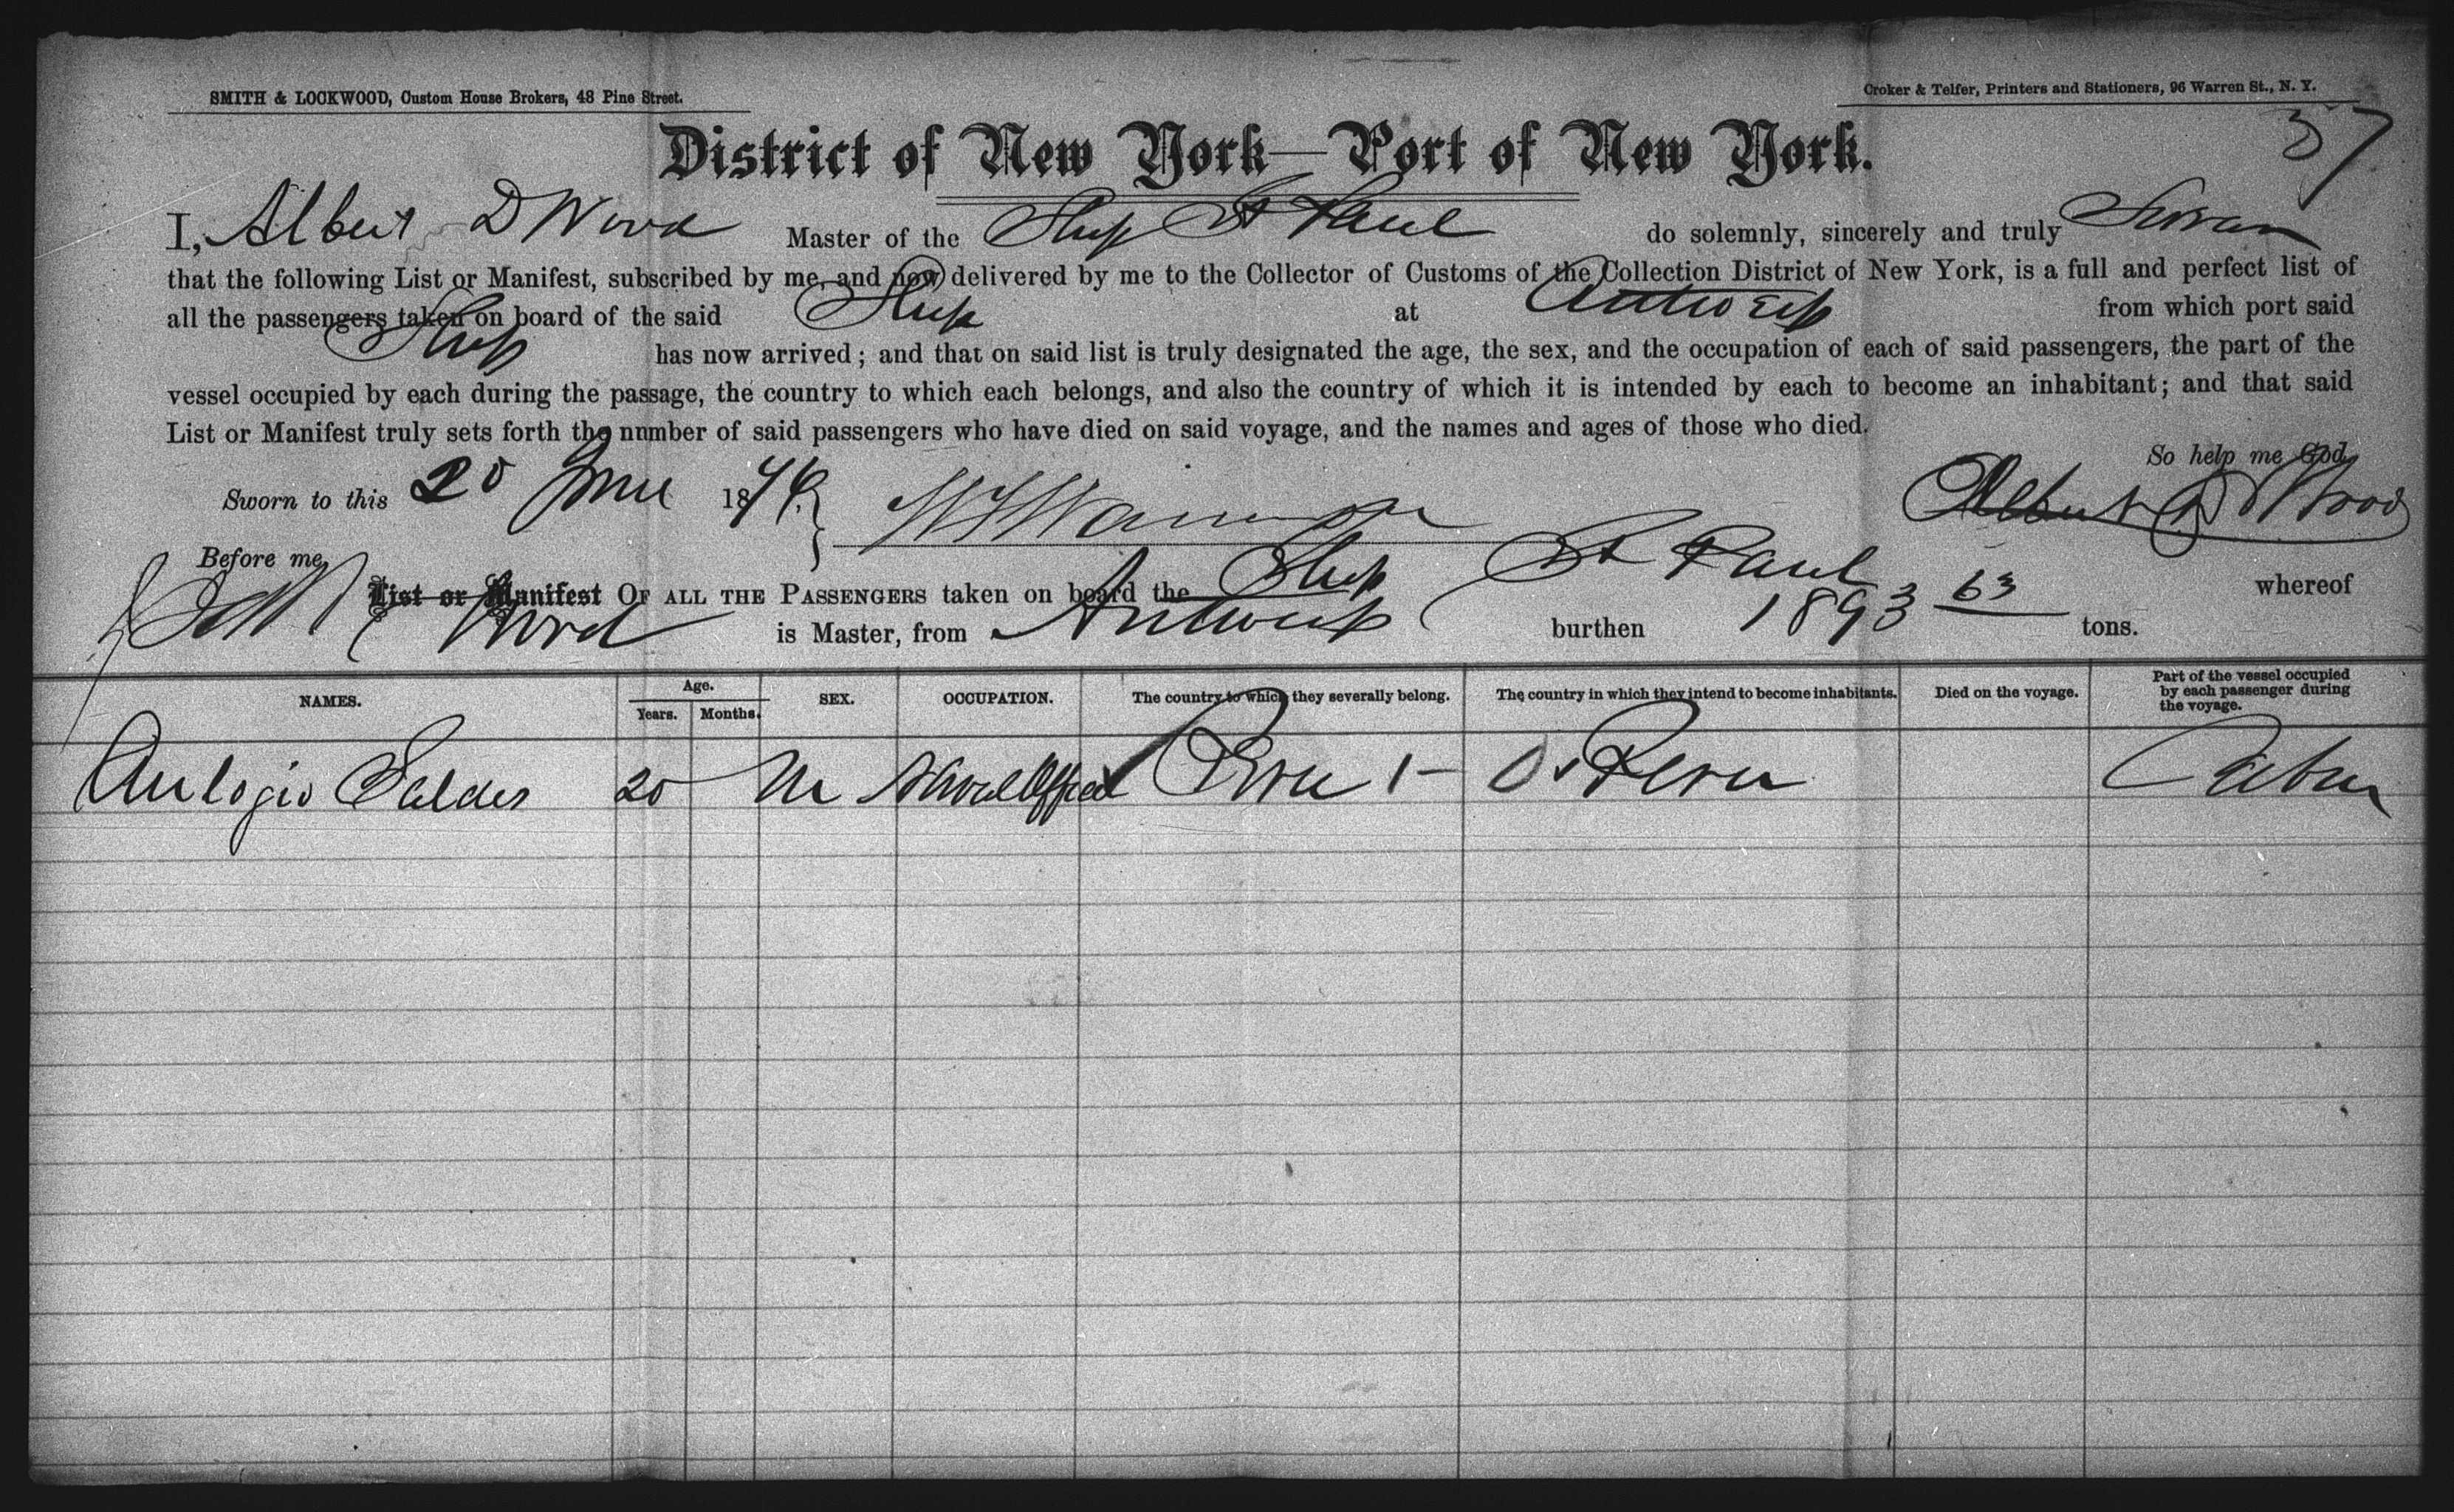 SMITH & LOCKWOOD, Custom House Brokers, 48 Pine Street.
Croker & Telfer, Printers and Stationers, 96 Warren St., N. Y.
37
District of New York—Port of New York.
I, Albert D Wood Master of the Ship St Paul do solemnly, sincerely and truly Swear
that the following List or Manifest, subscribed by me, and now delivered by me to the Collector of Customs of the Collection District of New York, is a full and perfect list of
all the passengers taken on board of the said Ship at Antwerp from which port said
Ship has now arrived; and that on said list is truly designated the age, the sex, and the occupation of each of said passengers, the part of the
vessel occupied by each during the passage, the country to which each belongs, and also the country of which it is intended by each to become an inhabitant; and that said
List or Manifest truly sets forth the number of said passengers who have died on said voyage, and the names and ages of those who died.
So help me God.
Sworn to this 20 June 1876 Albert D Wood
Before me,
List or Manifest OF ALL THE PASSENGERS taken on board the Ship St Paul whereof
Wood is Master, from Antwerp burthen 1893 63 tons.
NAMES. Age. Years. Months. SEX. OCCUPATION. The country to which they severally belong. The country in which they intend to become inhabitants. Died on the voyage. Part of the vessel occupied by each passenger during the voyage.
20 M Naval Officer Peru 1 Peru Cabin